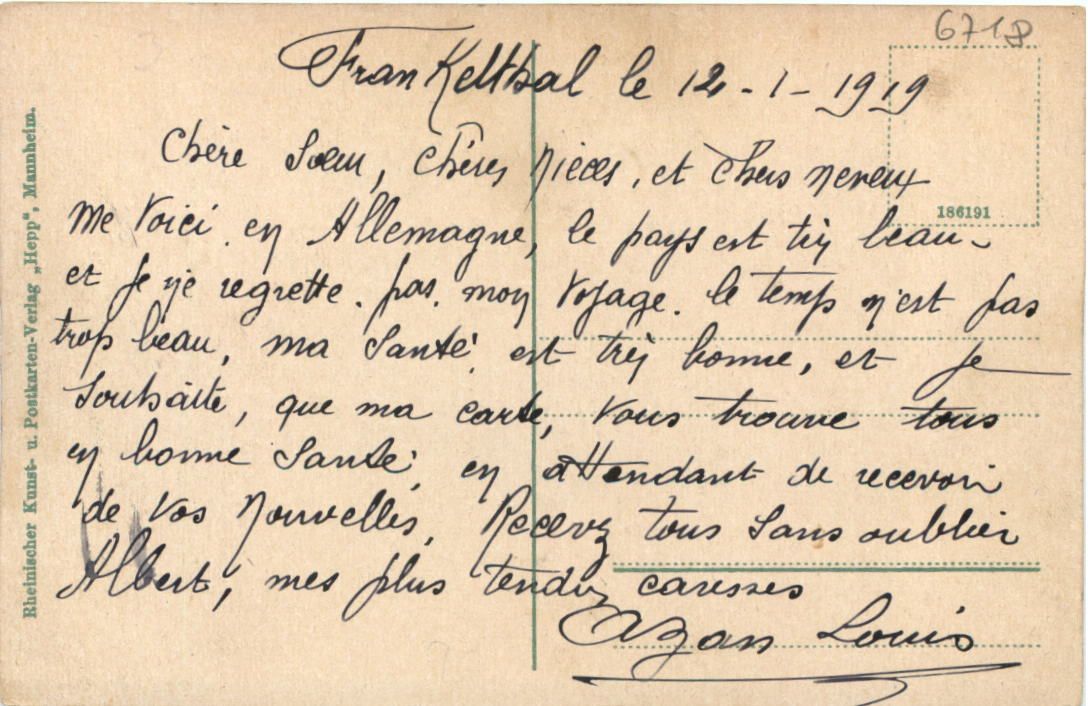 6718
FranKelthal le 12-1-1919
Chère Sœur, chères Nièces, et chers neveux
me voici en Allemagne, le pays est très beau
et je ne regrette pas mon voyage. le temps n'est pas
trop beau, ma santé est très bonne, et je
souhaite, que ma carte, vous trouve tous
en bonne santé, en attendant de recevoir
de vos Nouvelles, Recevez tous sans oublier
Albert, mes plus tendres caresses
Azan Louis
186191
Rheinischer Kunst- u. Postkarten-Verlag „Hepp", Mannheim.